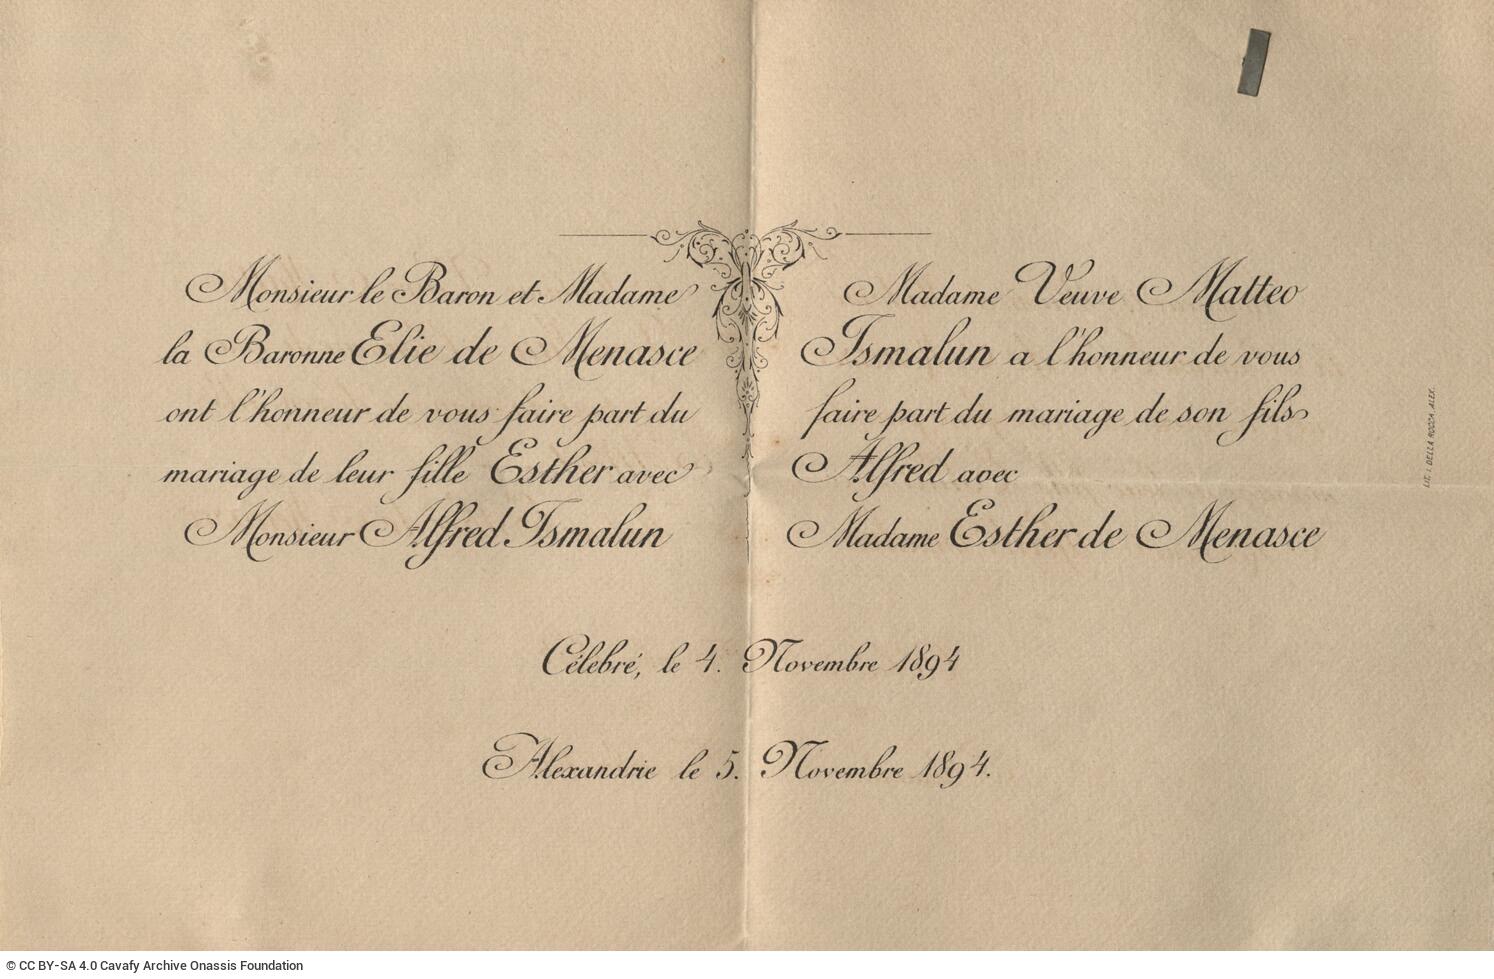 Monsieur le Baron et Madame
la Baronne Elie de Menasce
ont l'honneur de vous faire part du
mariage de leur fille Esther avec
Monsieur Alfred Ismalun
Madame Veuve Matteo
Ismalun a l'honneur de vous
faire part du mariage de son fils
Alfred avec
Madame Esther de Menasce
Célebré, le 4. Novembre 1894
Alexandrie le 5. Novembre 1894.
LIT. I. DELLA ROCCA, ALEX.
© CC BY-SA 4.0 Cavafy Archive Onassis Foundation